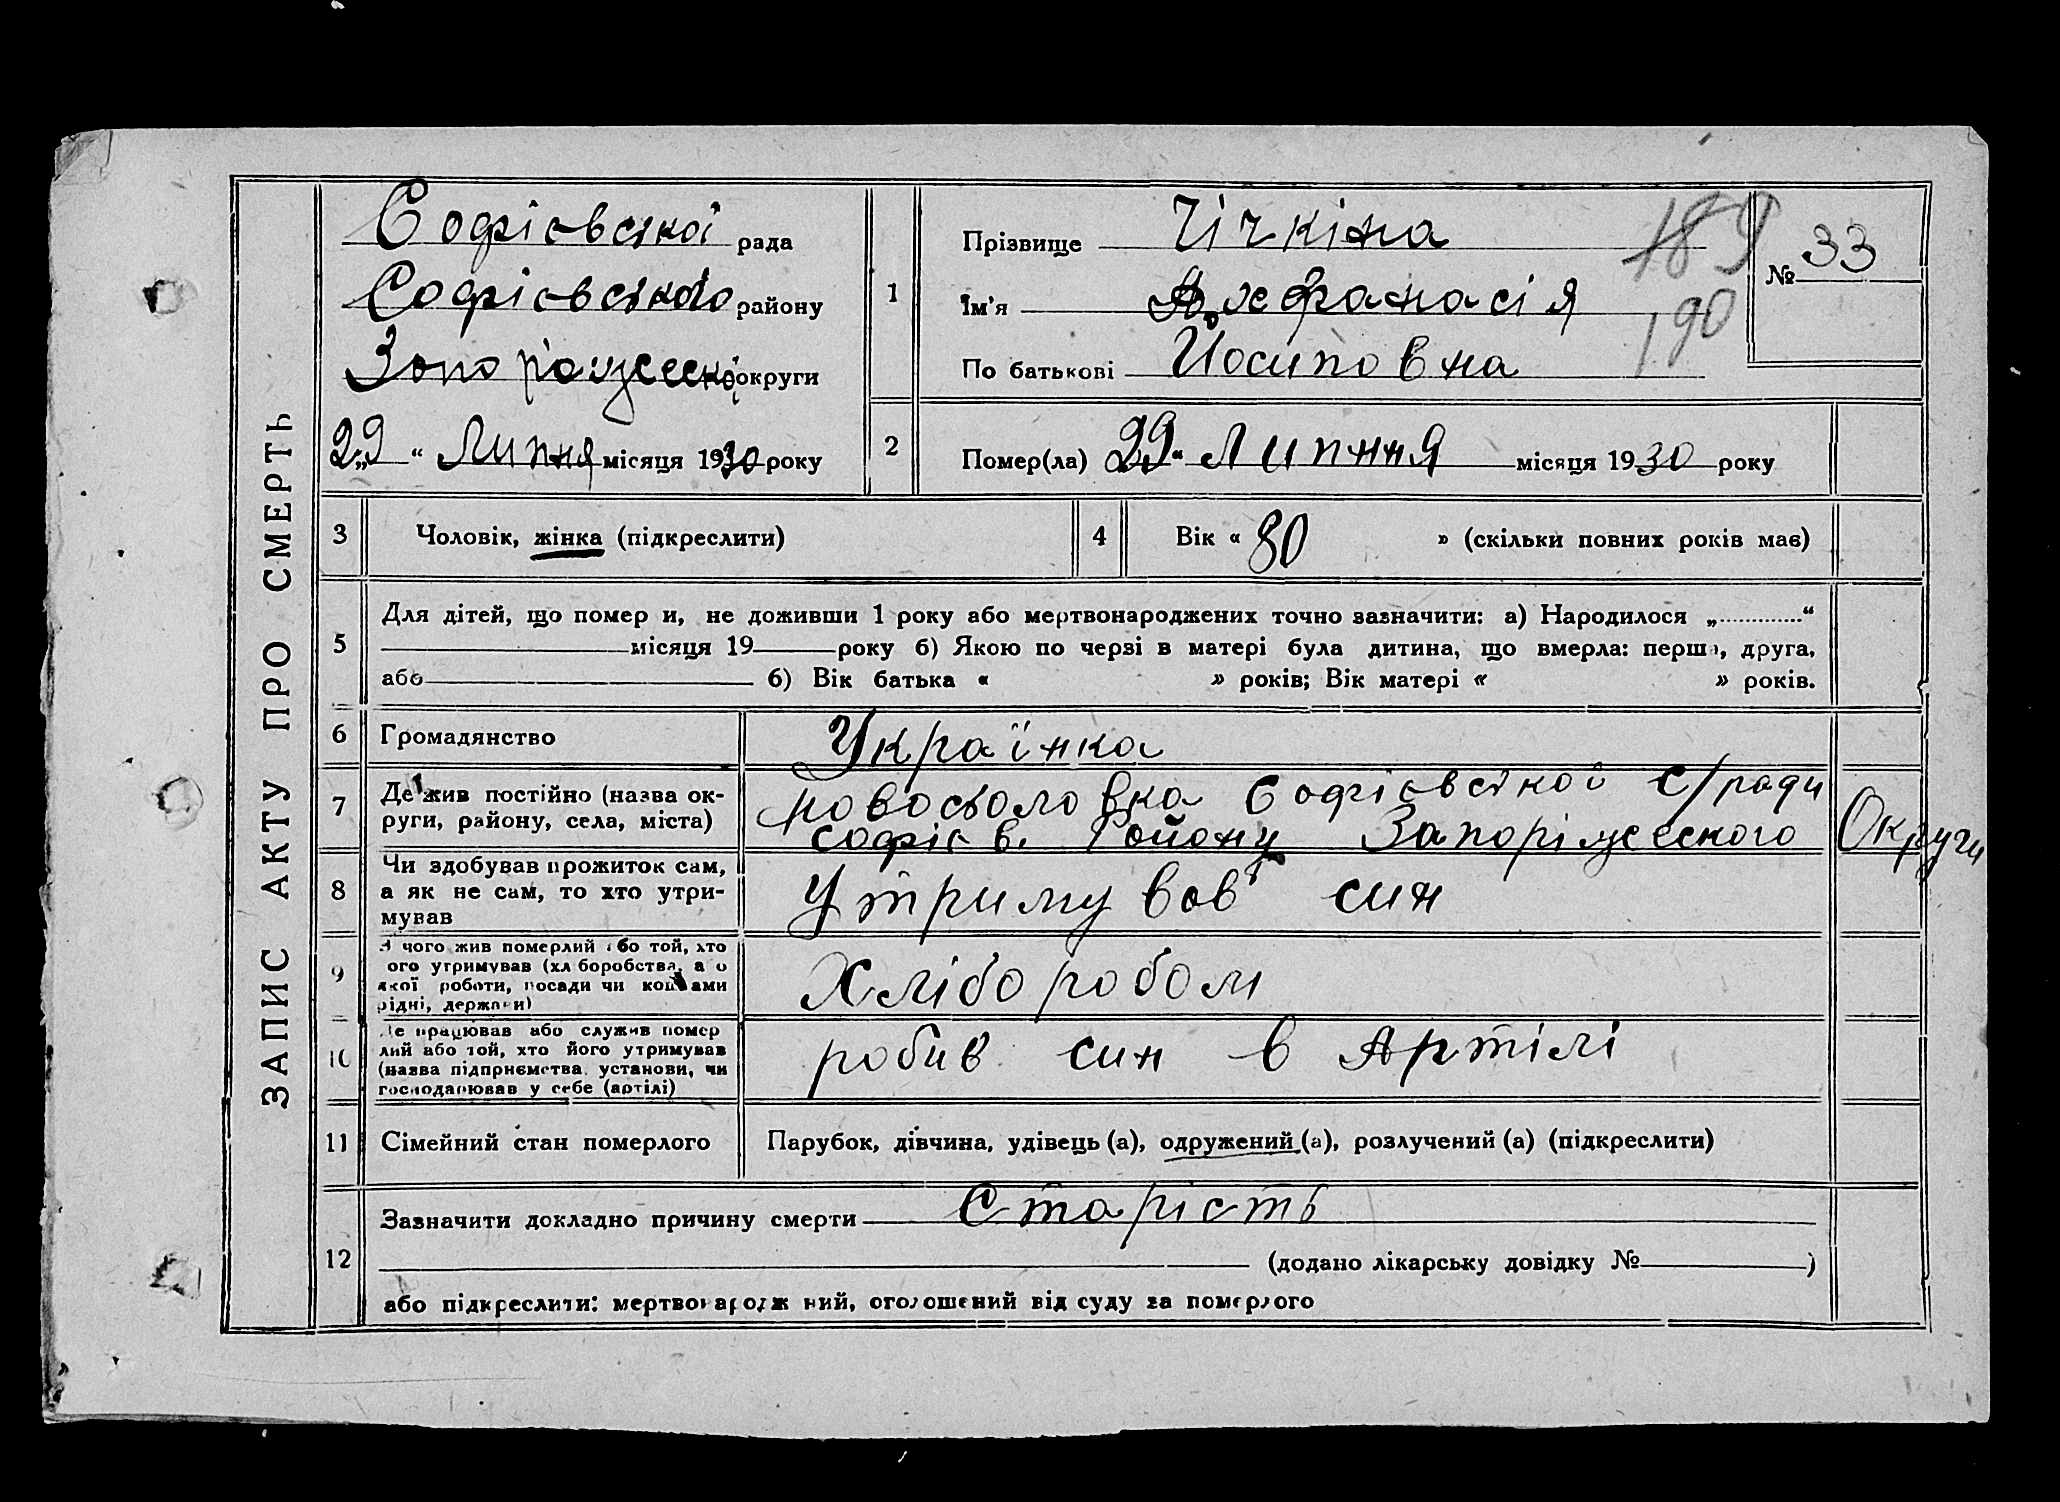 ЗАПИС АКТУ ПРО СМЕРТЬ
Софієвської рада
Софієвського району
округи
„29“ Липня місяця 1930 року
1
Прізвище Чічкіна
Їм'я
По батькові Йосиповна
189
190
№ 33
2
Помер(ла) 29“ Липння місяця 1930 року
3
Чоловік, жінка (підкреслити)
4
Вік « 80 » (скільки повних років має)
5
Для дітей, що помер и, не доживши 1 року або мертвонароджених точно зазначити: а) Народилося „.............“
місяця 19 року б) Якою по черзі в матері була дитина, що вмерла: перша, друга,
або б) Вік батька « » років; Вік матері « » років.
6
Громадянство
Українка
7
Де жив постійно (назва ок-
руги, району, села, міста)
Софієвської с/ради
Софієв. Району Запоріжеского Округи
8
Чи здобував прожиток сам,
а як не сам, то хто утри-
мував
Утримував син
9
З чого жив померлий або той, хто
ого утримував (хл боробства, а о
якої роботи, посади чи коштами
рідні, держави)
Хлібороболи
10
Де працював або служив помер
лий або той, хто його утримував
(назва підприємства, установи, чи
господарював у себе (артілі)
робив син в Артілі
11
Сімейний стан померлого
Парубок, дівчина, удівець (а), одружений (а), розлучений (а) (підкреслити)
12
Зазначити докладно причину смерти Старість
(додано лікарську довідку № )
або підкреслити: мертвонародж ний, оголошений від суду за померлого